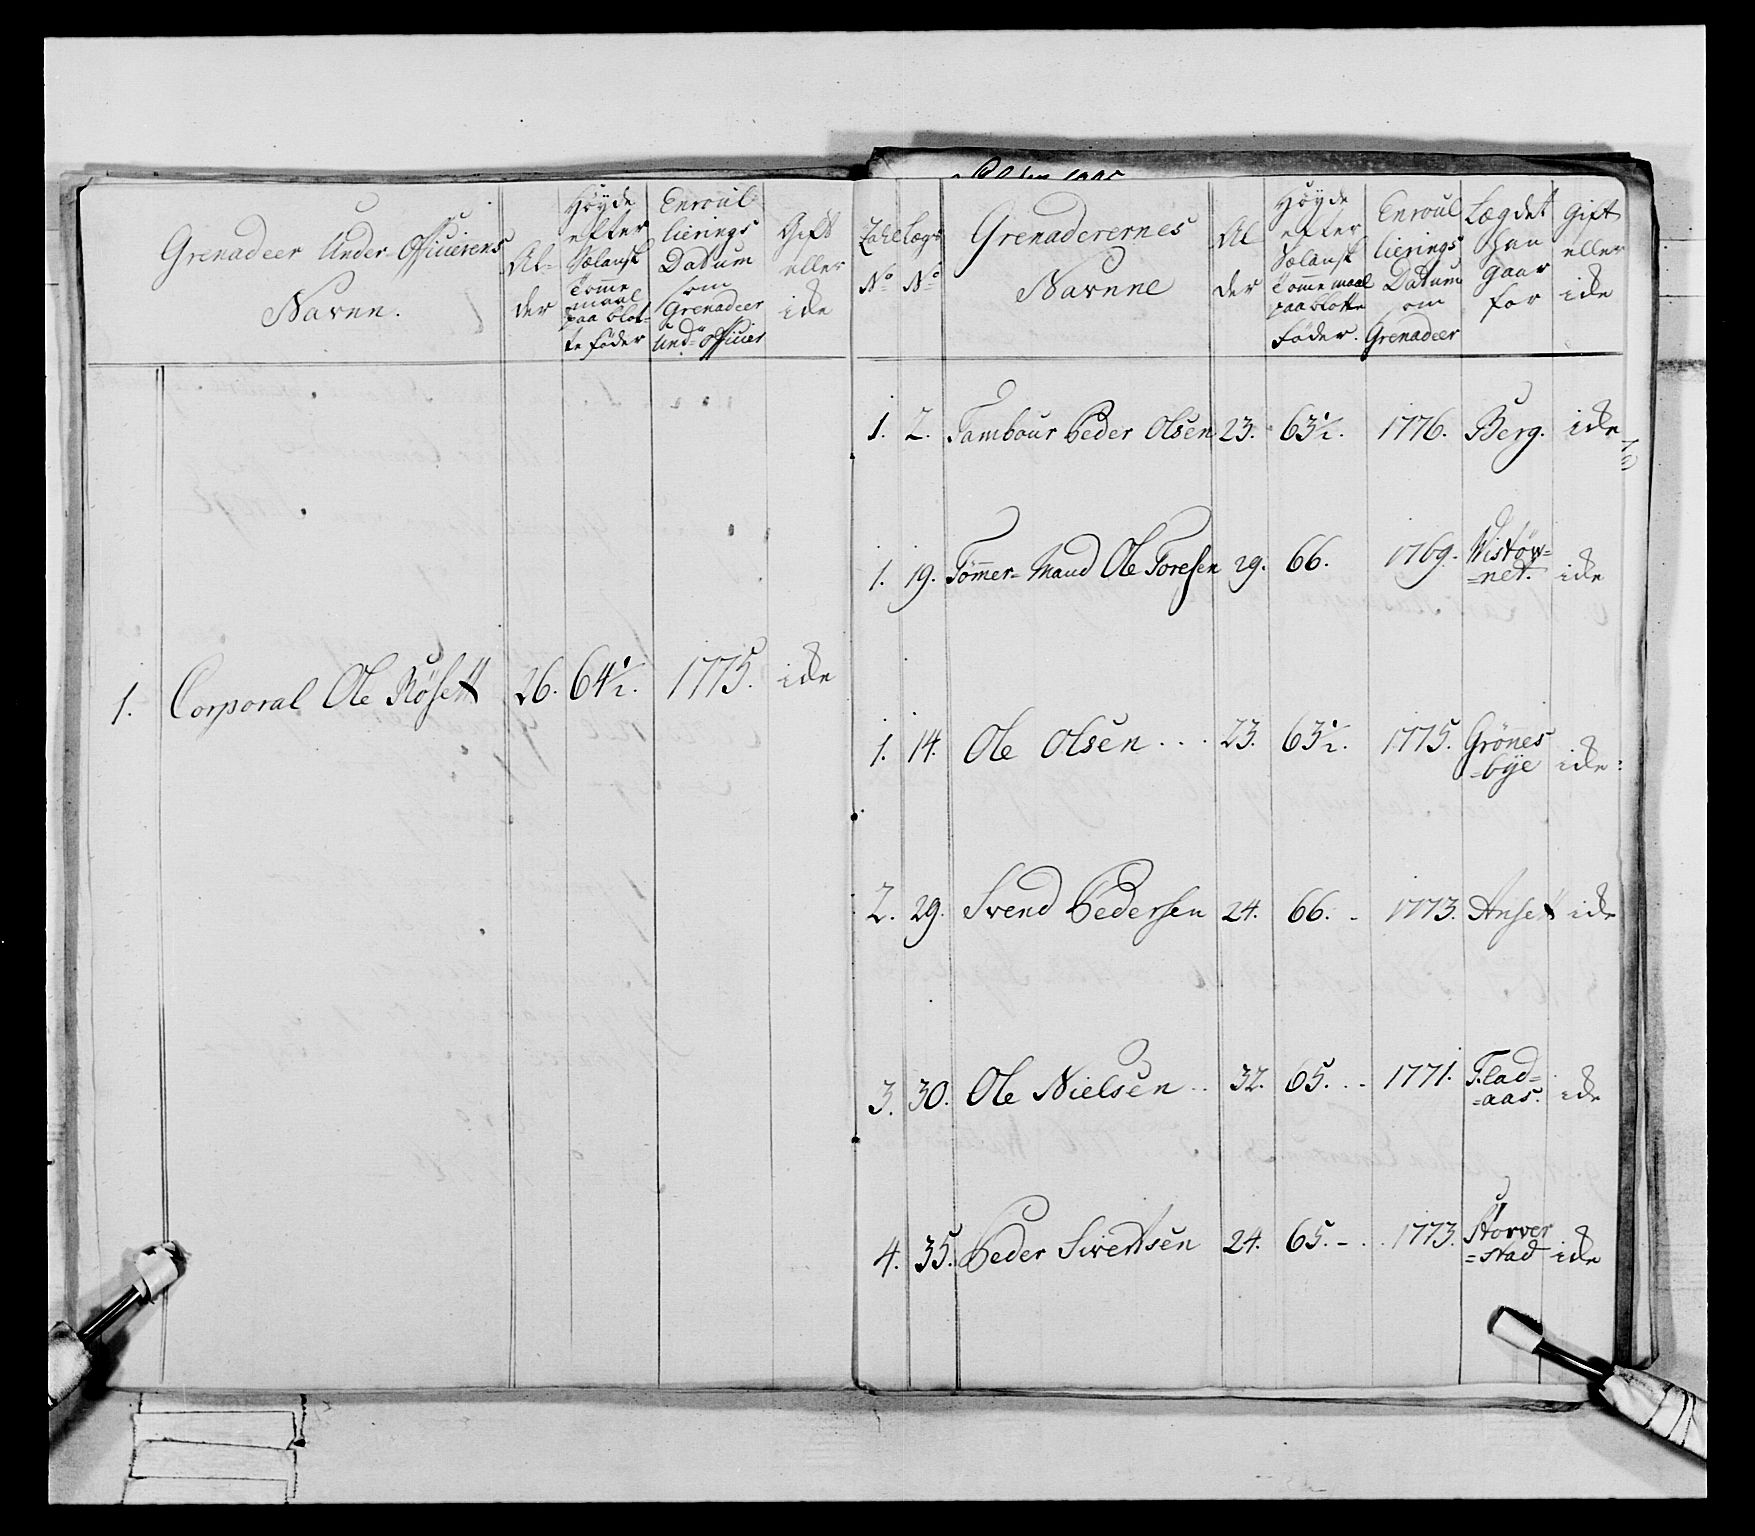 Grenadeer Under Officierens
Navne.
Al-
der
Høyde
efter
Sælansk
Tomme
maal
paa blot-
te føder
Enroul
lierings
Datum
som
Grenadeer
Und: Officier
Gift
eller
ide
1. Corporal Ole Røsett 26. 64½. 1775. ide
Zahl
No
Lægs
No
Grenaderernes
Navnne
Al
der
Høyde
efter
Sælansk
Tomme maal
paa blotte
Føder.
Enroul
lierings
Datum
som
Grenadeer
Lægdet
han
gaar
for
Gift
eller
ide
1. 2. Tambour Peder Olsen 23. 63½. 1776. Berg. ide
1. 19. Tømmer-Mand Ole Toresen 29. 66. 1769. Wistøw=
=net. ide
1. 14. Ole Olsen . . . 23. 63½. 1775. Grønes
=bye ide:
2. 29. Svend Pedersen 24. 66. - 1773. Ansett ide
3. 30. Ole Nielsen . . 32. 65. . - 1771. Flad=
=aas. ide
4. 35. Peder Sivertsen 24. 65. - . 1773. Størver
=stad ide